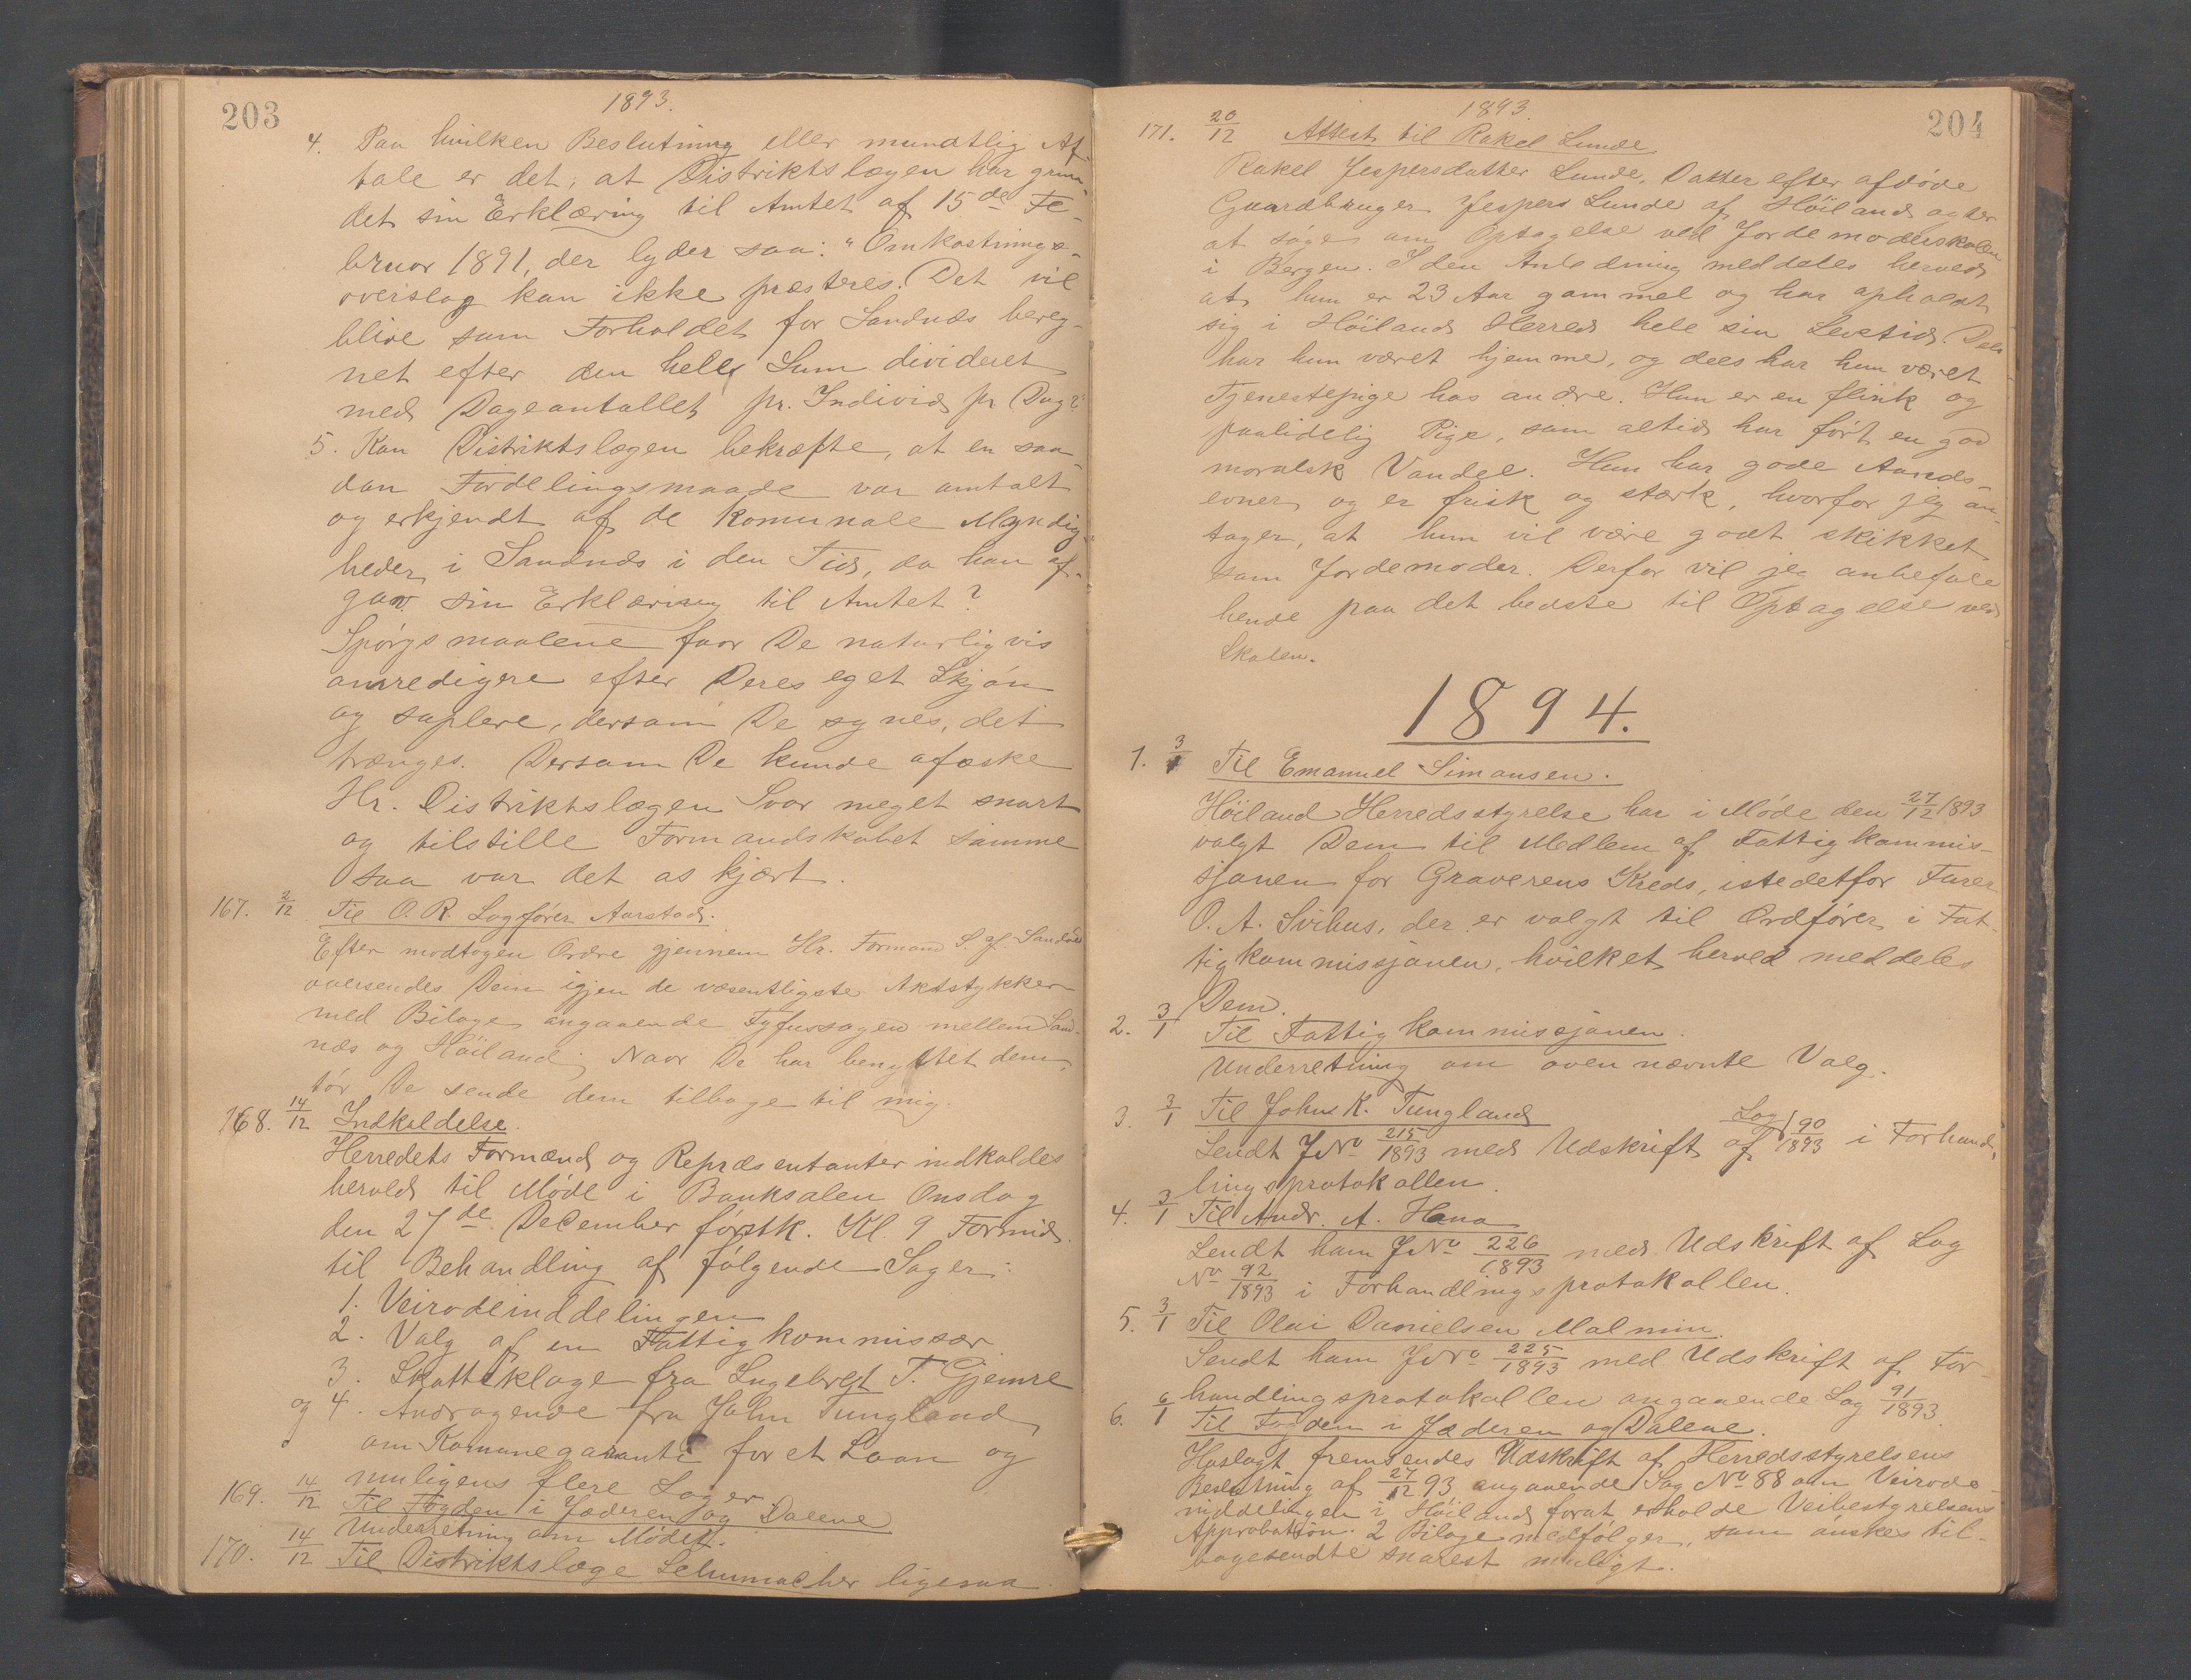 203
1893.
4. Paa hvilken Beslutning eller mundtlig Af-
tale er det, at Distriktslægen har grun-
det sin Erklæring til Amtet af 15de Fe-
bruar 1891, der lyder saa: "Omkostnings-
overslag kan ikke præsteres. Det vil
blive som Forholdet for Sandnæs bereg-
net efter den hele Sum divideret
med Dageantallet pr. Individ pr Dag?"
5. Kan Distriktslægen bekræfte, at en saa-
dan Fordelingsmaade var omtalt
og erkjendt af de komunale Myndig-
heder i Sandnæs i den Tid, da han af-
gav sin Erklæring til Amtet?
Spørgsmaalene faar De naturligvis
omredigere efter Deres eget Skjøn
og suplere, dersom De synes, det
trænges. Dersom De kunde afæske
Hr. Distriktslægen Svar meget snart
og tilstille Formandskabet samme
saa var det os kjært.
167. 2/12 Til O. R. Sagfører Aarstad.
Efter modtagen Ordre gjennem Hr. Formand S. Sandved
oversendes Dem igjen de væsentligste Aktstykker
med Bilage angaaende Tyfussagen mellem Sand-
næs og Höiland; Naar De har benyttet dem,
tør De sende dem tilbage til mig.
168. 14/12 Indkaldelse.
Herredets Formænd og Repræsentanter indkaldes
herved til Møde i Banksalen Onsdag
den 27de December førstk. Kl. 9 Formid.
til Behandling af følgende Sager:
1. Veirodeinddelingen
2. Valg af en Fattigkommissær
3. Skatteklage fra Ingebregt T. Gjemre
og 4. Andragende fra John Tungland
om Komunegaranti for et Laan og
muligens flere Sager.
169. 14/12 Til Fogden i Jæderen og Dalene
Underretning om Mødet.
170. 14/12 Til Distriktslæge Schumacher ligesaa.
1893.
204
171. 20/12 Attest til Rakel Lunde.
Rakel Jespersdatter Lunde, Datter efter afdøde
Gaardbruger Jespers Lunde af Höiland agter
at søge om Optagelse ved Jordemoderskolen
i Bergen. I den Anledning meddeles herved
at hun er 23 Aar gammel og har opholdt
sig i Höiland Herred hele sin Levetid. Dels
har hun været hjemme, og dels har hun været
Tjenestepige hos andre. Hun er en flink og
paalidelig Pige, som altid har ført en god
moralsk Vandel. Hun har gode Aands-
evner og er frisk og stærk, hvorfor jeg an-
tager, at hun vil være godt skikket
som Jordemoder. Derfor vil jeg anbefale
hende paa det bedste til Optagelse ved
Skolen.
1894.
1. 3/1 Til Emanuel Simonsen.
Höiland Herredsstyrelse har i Møde den 27/12 1893
valgt Dem til Medlem af Fattigkommis-
sjonen for Graverens Kreds, istedetfor Furer
O. A. Svihus, der er valgt til Ordfører i Fat-
tigkommissjonen, hvilket herved meddeles
Dem.
2. 3/1 Til Fattigkommissjonen.
Underretning om ovennævnte Valg.
3. 3/1 Til John K. Tungland
Sendt JNo 215/1893 med Udskrift af Sag 90/1893 i Forhand-
lingsprotokollen.
4. 3/1 Til Andr. A. Hana
Sendt ham JNo 226/1893 med Udskrift af Sag
No 92/1893 i Forhandlingsprotokollen.
5. 3/1 Til Olai Danielsen Malmin.
Sendt ham JNo 225/1893 med Udskrift af For-
handlingsprotokollen angaaende Sag 91/1893.
6. 6/1 Til Fogden i Jæderen og Dalene.
Hoslagt fremsendes Udskrift af Herredsstyrelsens
Beslutning af 27/12 93 angaaende Sag No 88 om Veirode-
inddelingen i Höiland forat erholde Veibestyrelsens
Approbation. 2 Bilage medfølger, som ønskes til-
bagesendte snarest muligt.